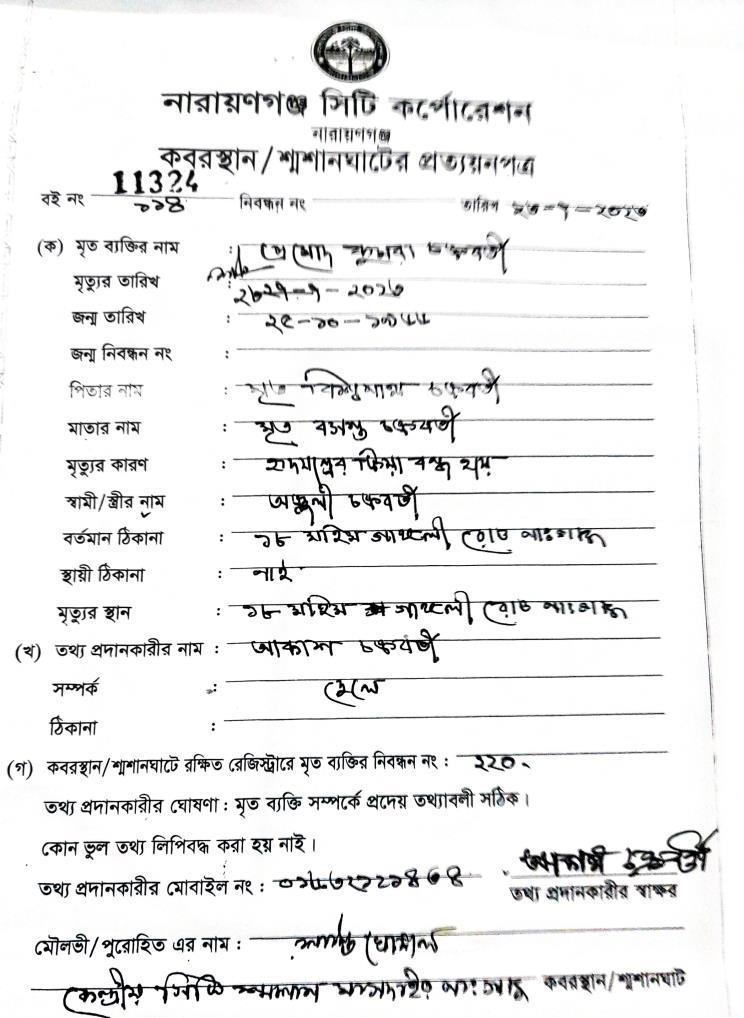 নারায়ণগঞ্জ সিটি কর্পোরেশন
নারায়ণগঞ্জ
কবরস্থান/শ্মশানঘাটের প্রত্যয়নপত্র
11324
বই নং ১১৪ নিবন্ধন নং তারিখ
(ক) মৃত ব্যক্তির নাম : চক্রবর্তী
মৃত্যুর তারিখ
জন্ম তারিখ : ২৫-১০-১৯৫৫
জন্ম নিবন্ধন নং :
পিতার নাম : মৃত চক্রবর্তী
মাতার নাম : মৃত বসন্ত চক্রবর্তী
মৃত্যুর কারণ : হৃদযন্ত্রের ক্রিয়া বন্ধ হয়ে
স্বামী/স্ত্রীর নাম : অঞ্জলী চক্রবর্তী
বর্তমান ঠিকানা : ১৮ মহিম গাঙ্গুলী রোড
স্থায়ী ঠিকানা : নাই
মৃত্যুর স্থান : ১৮ মহিম গাঙ্গুলী রোড
(খ) তথ্য প্রদানকারীর নাম : আকাশ চক্রবর্তী
সম্পর্ক : ছেলে
ঠিকানা :
(গ) কবরস্থান/শ্মশানঘাটে রক্ষিত রেজিস্ট্রারে মৃত ব্যক্তির নিবন্ধন নং : ২২০
তথ্য প্রদানকারীর ঘোষণা : মৃত ব্যক্তি সম্পর্কে প্রদেয় তথ্যাবলী সঠিক।
কোন ভুল তথ্য লিপিবদ্ধ করা হয় নাই।
আকাশ চক্রবর্তী
তথ্য প্রদানকারীর মোবাইল নং : তথ্য প্রদানকারীর স্বাক্ষর
মৌলভী/পুরোহিত এর নাম : ঘোষাল
কেন্দ্রীয় সিটি শ্মশান কবরস্থান/শ্মশানঘাট